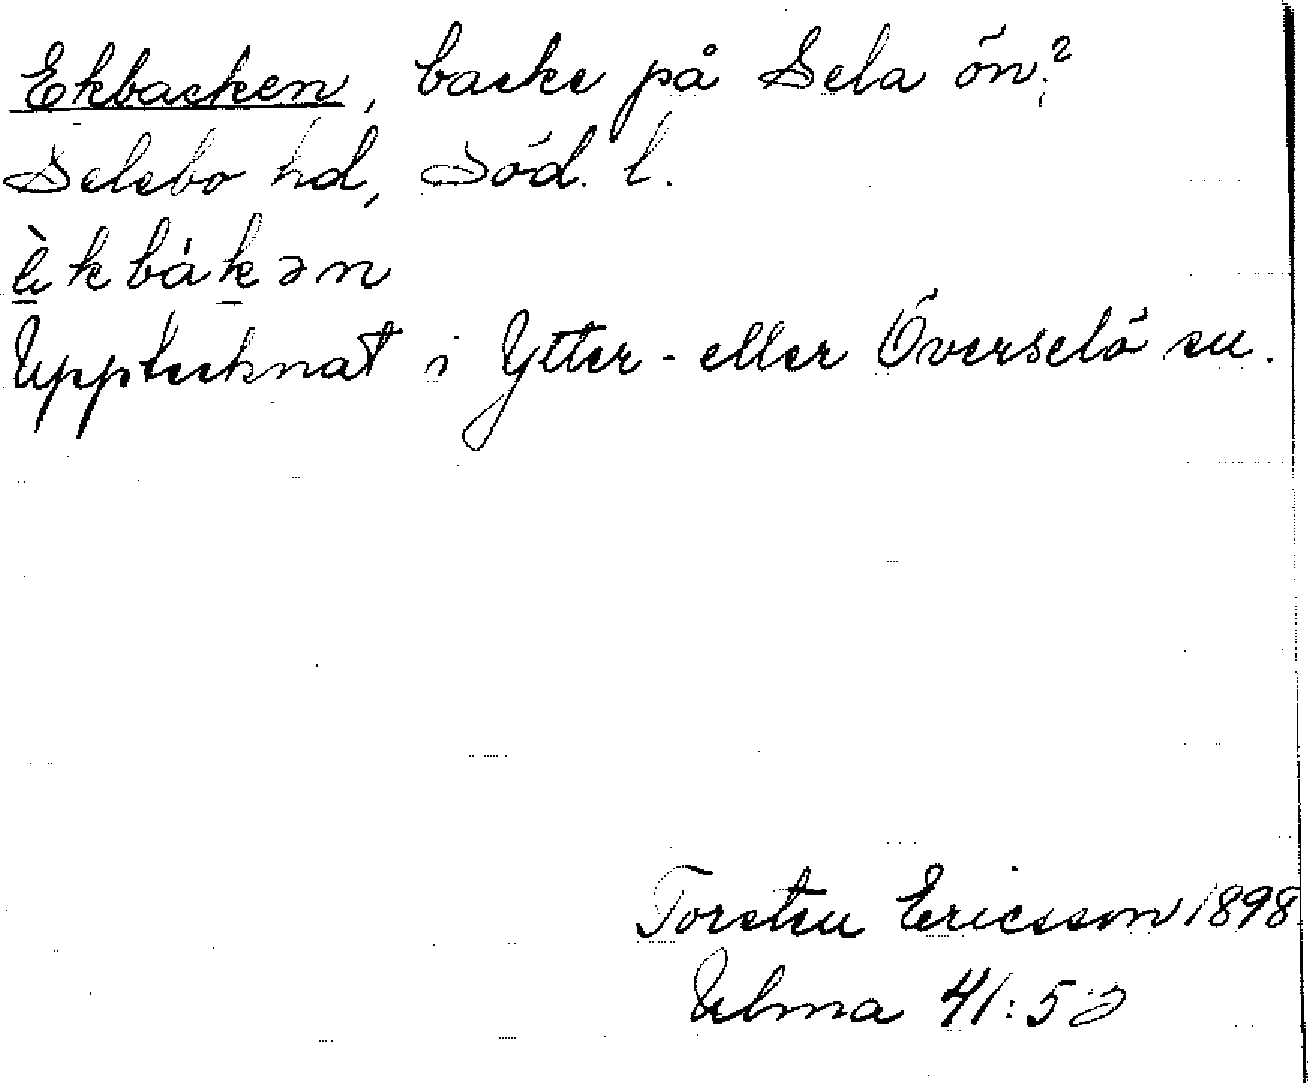 Ekbacken, backe på Sela ön?,
Selebo hd, Söd. l.
èkbákən
Upptecknat i Ytter- eller Överselö sn.
Torsten Ericsson 1898
Ulma 41:5